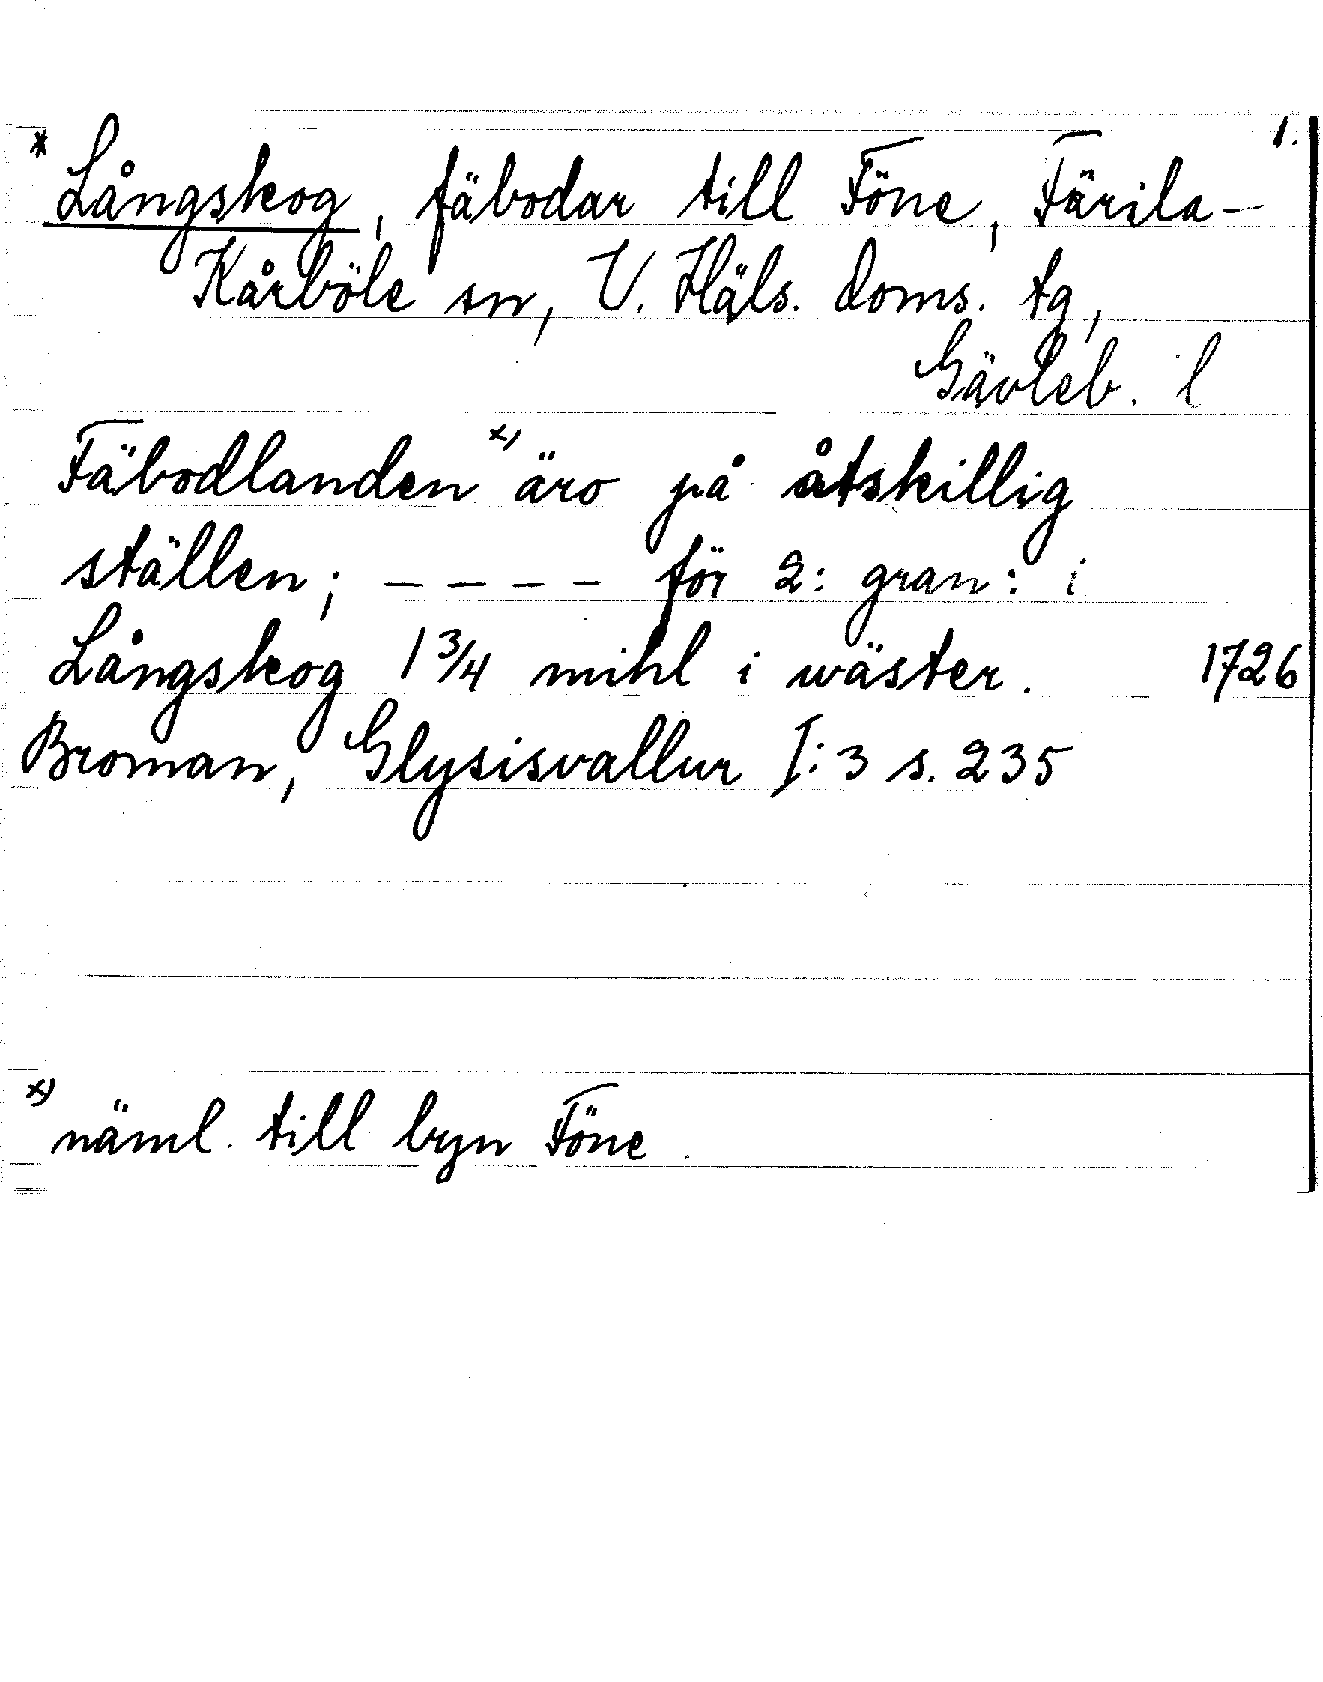 1.
* Långskog, fäbodar till Föne, Färila-
Kårböle sn, V. Häls. doms. tg,
Gävleb. l
Fäbodlanden x) äro på åtskillig
ställen; - - - - för 2: gran: i
Långskog 1 3/4 mihl i wäster. 1726
Broman, Glysisvallur I:3 s. 235
x) näml. till byn Föne.